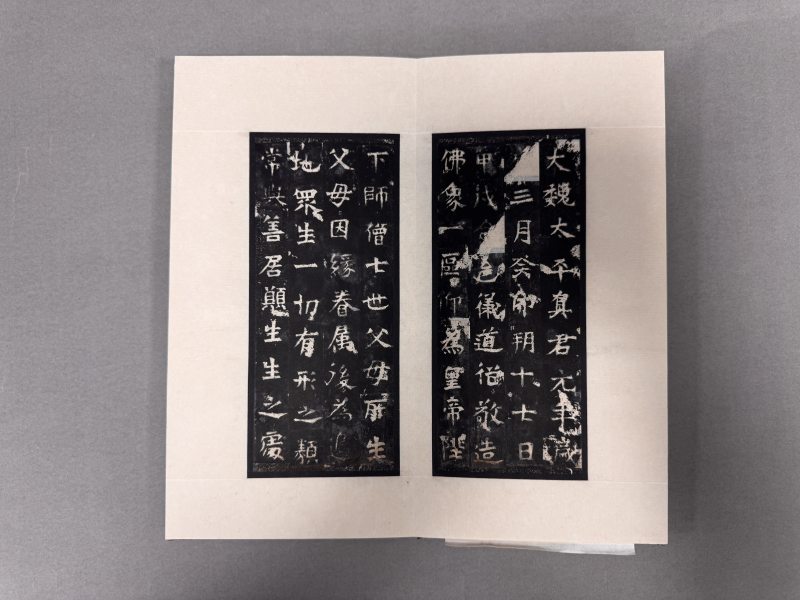 大魏太平真君元年歲
三月癸卯朔十七日
甲戌合邑儀道俗敬造
佛象一區仰為皇帝陛
下師僧七世父母所生
父母因緣眷属後為邊
地眾生一切有形之類
常與善居願生生之處